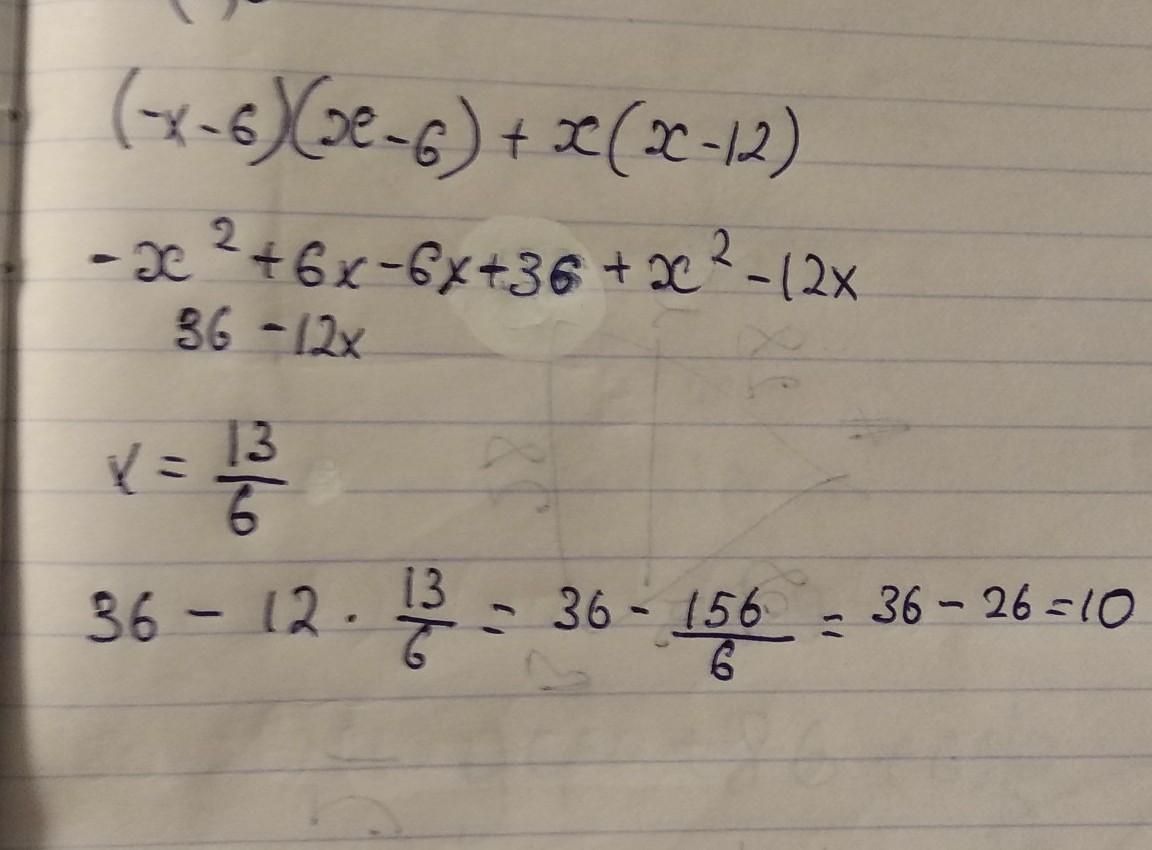 (-x-6)(x-6)+x(x-12)
-x²+6x-6x+36+x²-12x
36-12x
x = 13/6
36 - 12 · 13/6 = 36 - 156/6 = 36 - 26 = 10